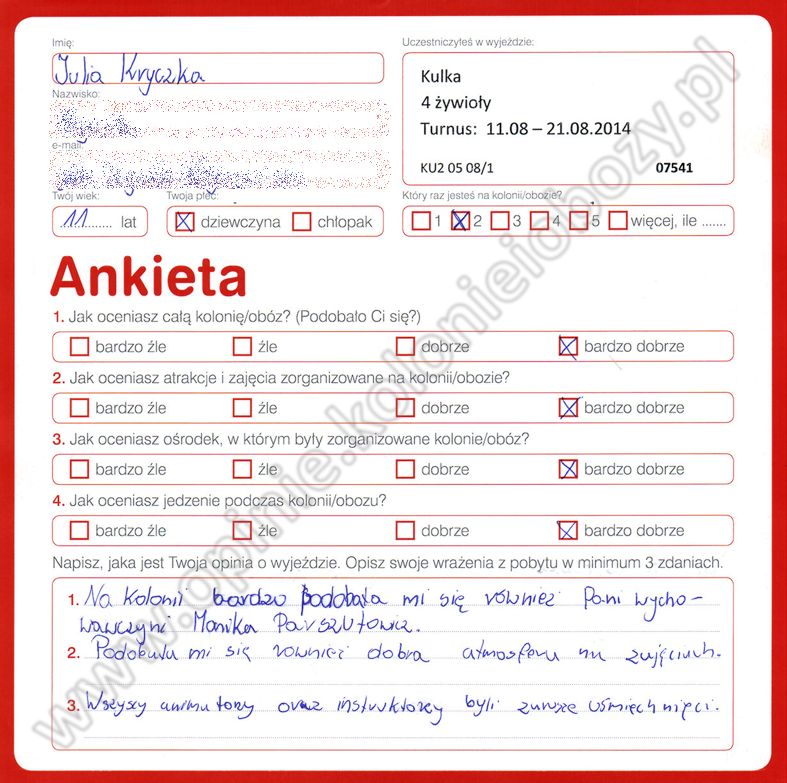 Imię:
Julia Kryczka
Nazwisko:
e-mail:
Twój wiek:
11 lat
Twoja płeć:
dziewczyna chłopak
Uczestniczyłeś w wyjeździe:
Kulka
4 żywioły
Turnus: 11.08 – 21.08.2014
KU2 05 08/1 07541
Który raz jesteś na kolonii/obozie?
1 2 3 4 5 więcej, ile .......
Ankieta
1. Jak oceniasz całą kolonię/obóz? (Podobało Ci się?)
bardzo źle źle dobrze bardzo dobrze
2. Jak oceniasz atrakcje i zajęcia zorganizowane na kolonii/obozie?
bardzo źle źle dobrze bardzo dobrze
3. Jak oceniasz ośrodek, w którym były zorganizowane kolonie/obóz?
bardzo źle źle dobrze bardzo dobrze
4. Jak oceniasz jedzenie podczas kolonii/obozu?
bardzo źle źle dobrze bardzo dobrze
Napisz, jaka jest Twoja opinia o wyjeździe. Opisz swoje wrażenia z pobytu w minimum 3 zdaniach.
1. Na kolonii bardzo podobała mi się również Pani wycho-
wawczyni Monika Parszutowicz.
2. Podobała mi się rownież dobra atmosfera na zajęciach.
3. Wszyscy animatorzy oraz instruktorzy byli zawsze uśmiechnięci.
www.opinie.kolonieiobozy.pl